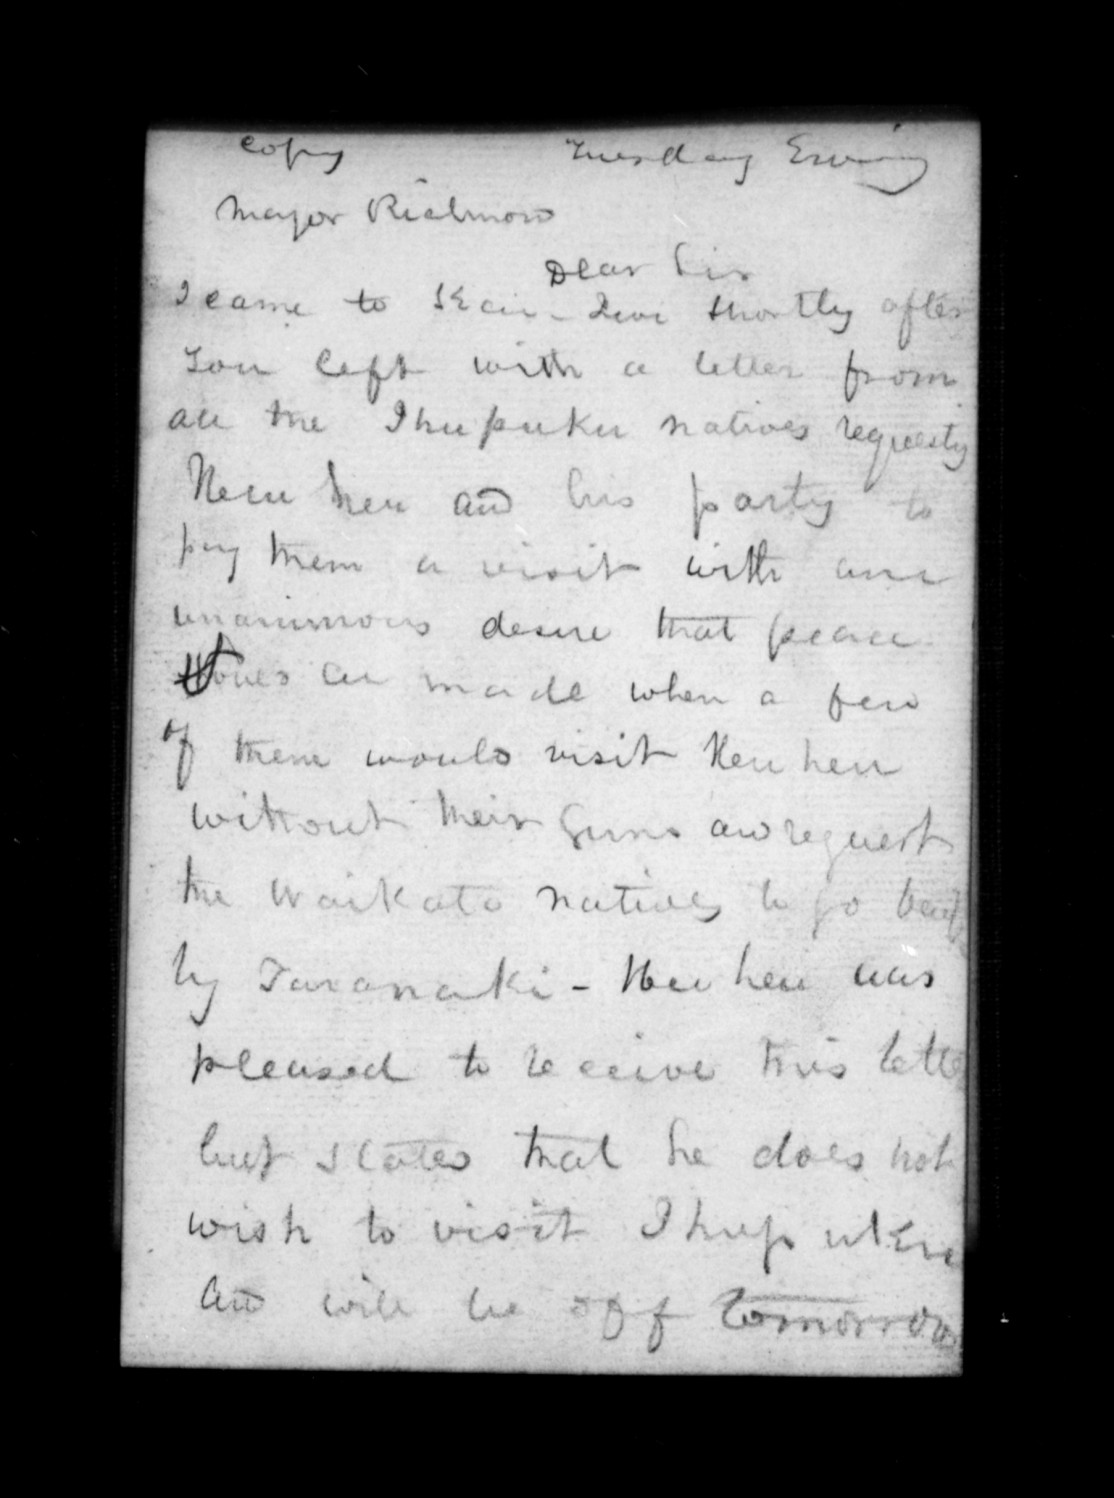 Copy Tuesday Evening
Major Richmond
Dear Sir
I came to Kai-Iwi shortly after
you left with a letter from
all the Ihupuku natives requestg
Heu heu and his party to
pay them a visit with an
unanimous desire that peace
be made when a few
of them would visit Heu heu
without their guns and request
the Waikato natives to go back
by Taranaki - Heu heu was
pleased to receive this lette
but states that he does not
wish to visit Ihupuku
and will be off tomorrow